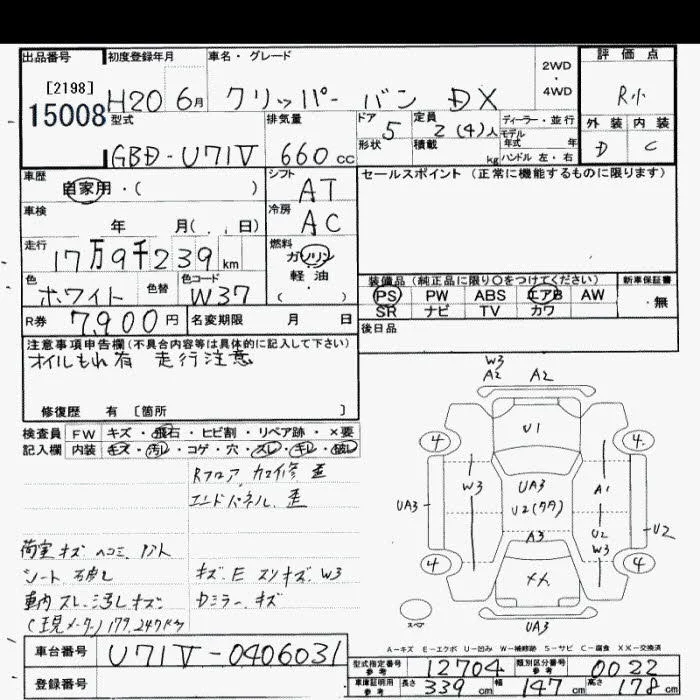 出品番号 初度登録年月 車名・グレード 2WD・4WD 評価点
[2198]
15008 H20 6月 クリッパー バン DX R小
型式 排気量 ドア 5 定員 2(4)人 ディーラー・並行 外装 内装
GBD-U71V 660cc 形状 積載 kg モデル年式 年 D C
ハンドル 左・右
車歴 自家用・( ) シフト AT セールスポイント(正常に機能するものに限ります)
車検 年 月( . . 日) 冷房 AC
走行 17万9千239km 燃料 ガソリン
軽油
( )
色 ホワイト 色替 色コード W37
装備品(純正品に限り○をつけてください) 新車保証書
PS PW ABS エアB AW ・無
SR ナビ TV カワ
R券 7,900円 名変期限 月 日 後日品
注意事項申告欄(不具合内容等は具体的に記入して下さい)
オイルもれ有 走行注意
修復歴 有 [箇所 ]
検査員 FW キズ・飛石・ヒビ割・リペア跡・×要
記入欄 内装 キズ・汚れ・コゲ・穴・スレ・キレ・破レ
Rフロア、カエ修 歪
エンドパネル、歪
荷室キズ ヘコミ
シート
車内スレ、汚レキズ
(現メーター)179,247km
キズ、E スリキズ、W3
Dミラー、キズ
W3
A2 A2
U1
4 4
W3 UA3 A1
UA3 U2(タタ) U2 U2
A3 W3
4 4
××
スペア
UA3
A-キズ E-エクボ U-凹み W-補修跡 S-サビ C-腐食 XX-交換済
車台番号 U71V-0406031
登録番号
型式指定番号 参考 12704 類別区分番号 参考 0022
車庫証明用 参考 長さ 339cm 幅 147cm 高さ 178cm